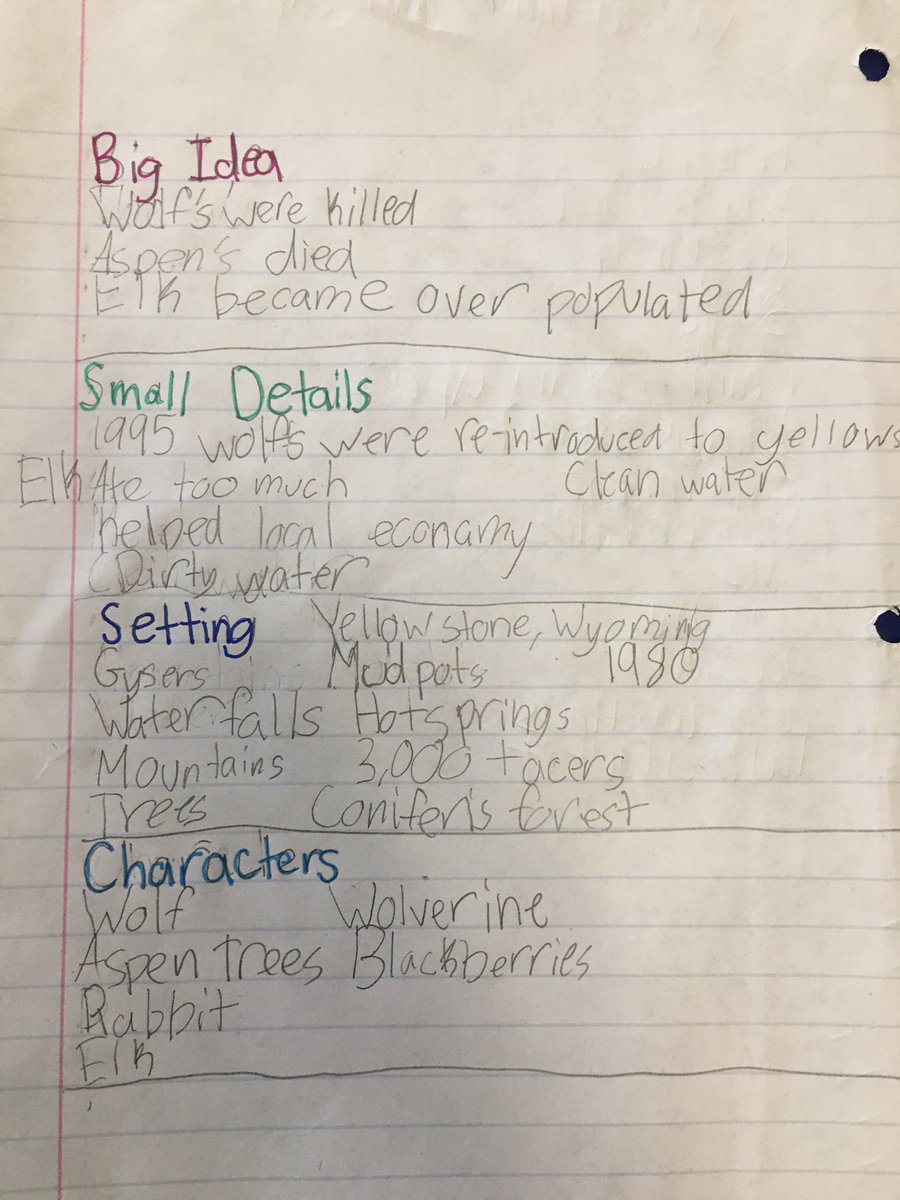 Big Idea
Wolf's were killed
Aspen's died
Elk became over populated
Small Details
1995 wolfs were re-introduced to yellows
Elk Ate too much Clean water
helped local econamy
Dirty water
Setting Yellowstone, Wyoming
Gysers Mudpots 1980
Waterfalls Hotsprings
Mountains 3,000 + acers
Trees Conifer's forest
Characters
Wolf Wolverine
Aspen Trees Blackberries
Rabbit
Elk